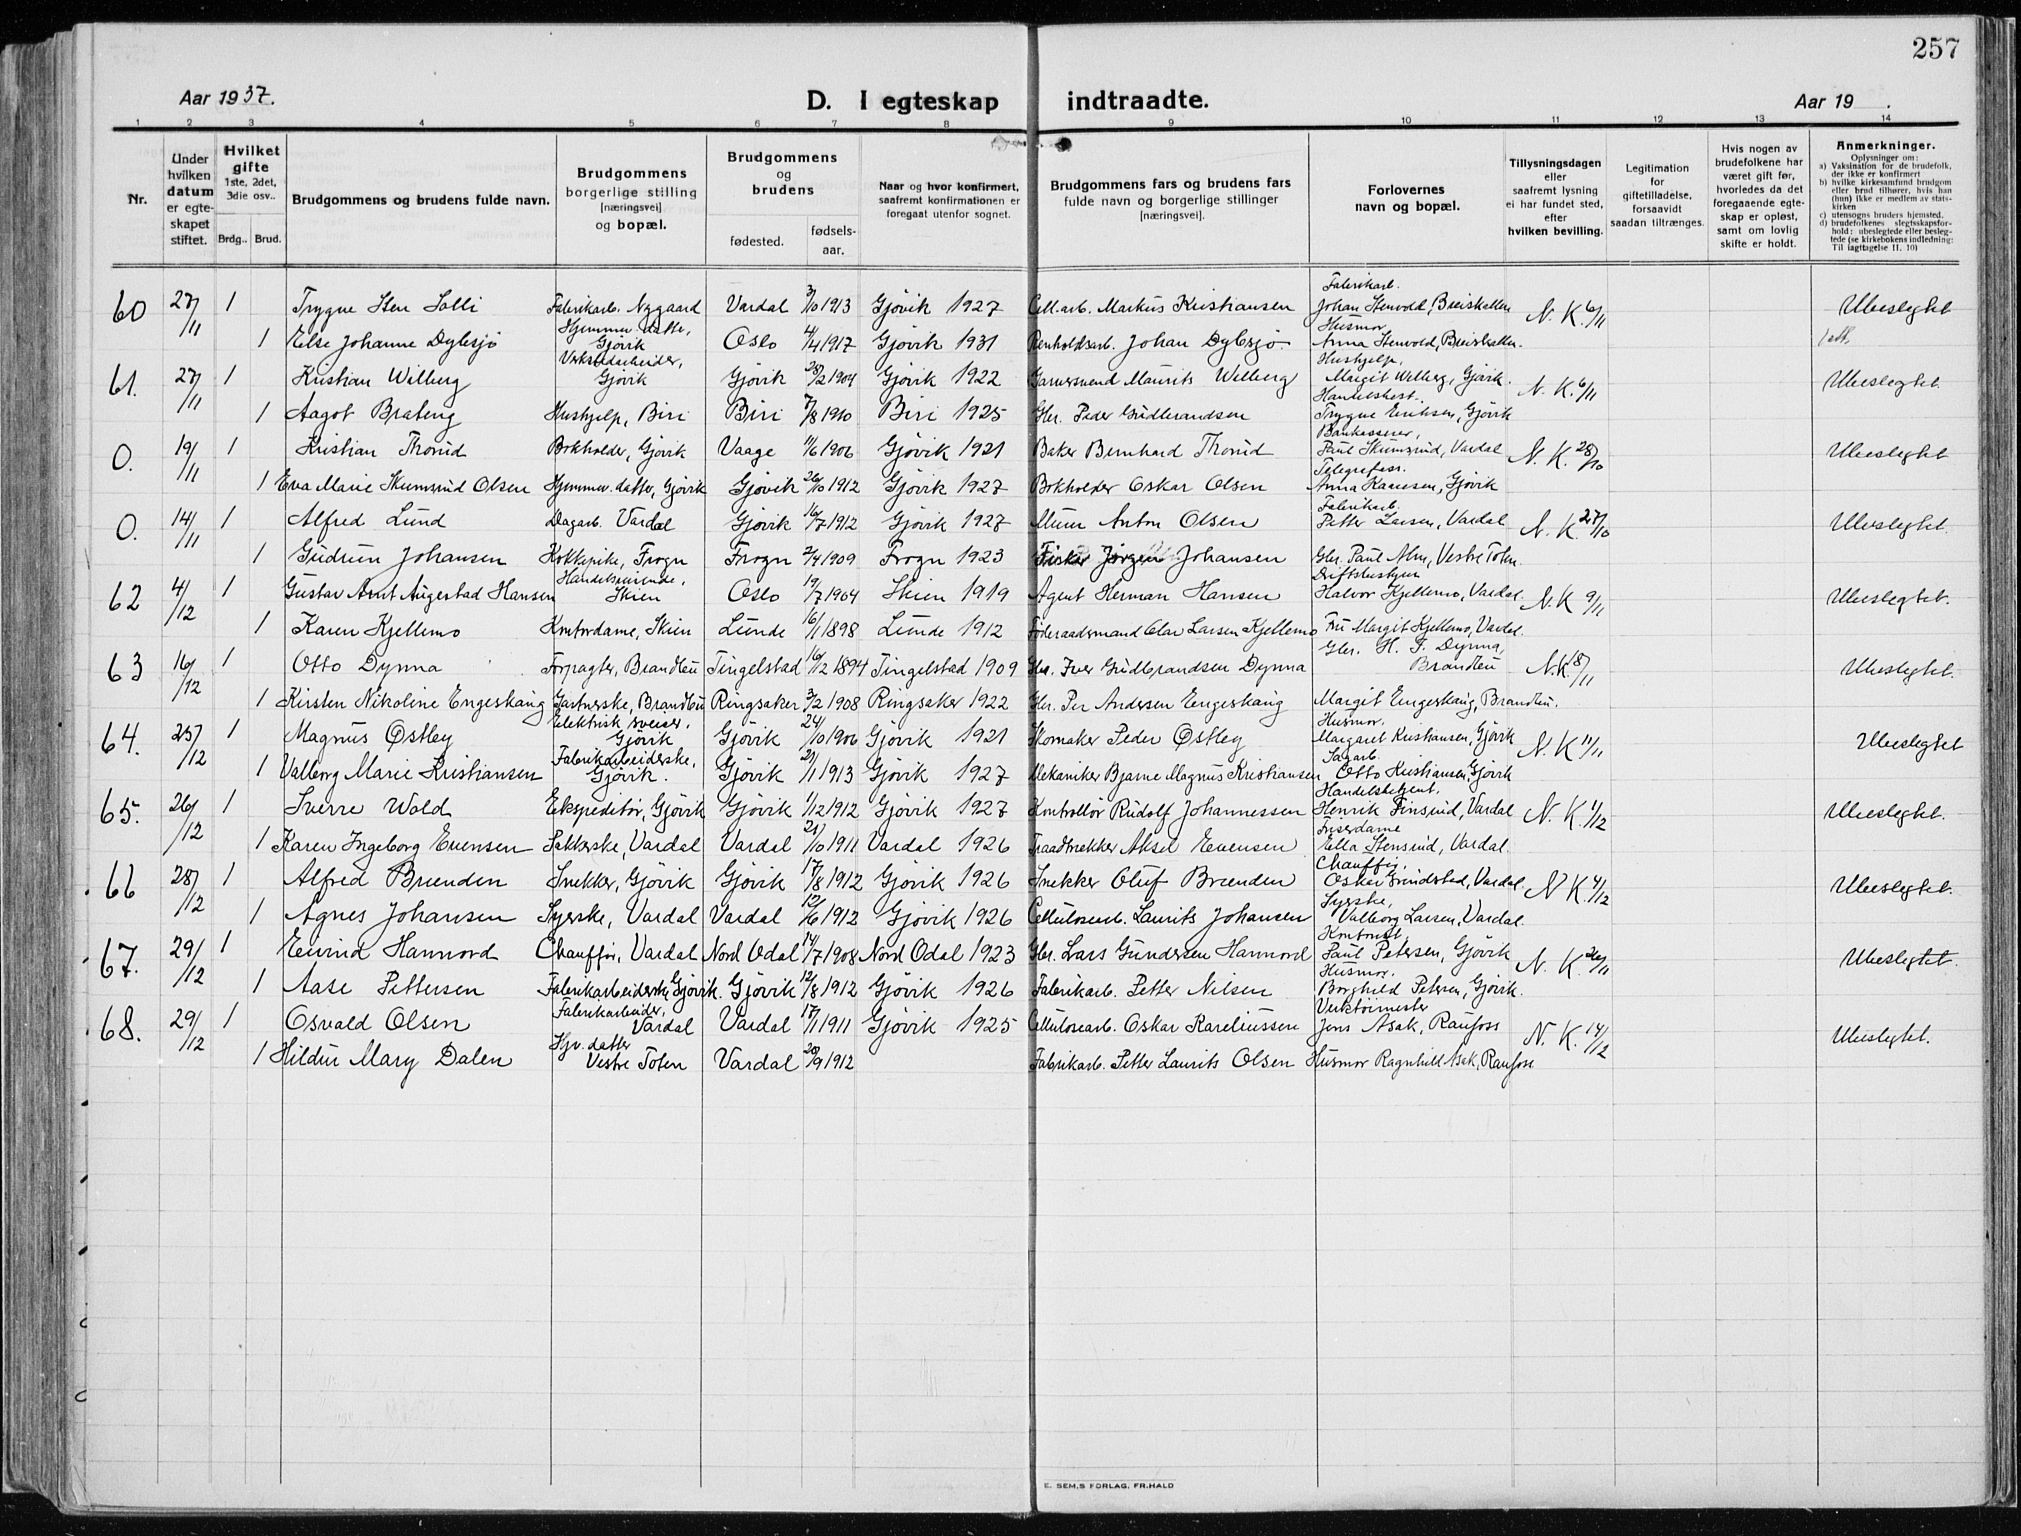 257
Aar 1937.
D. I egteskap indtraadte.
Aar 19 .
1 2 3 4 5 6 7 8 9 10 11 12 13 14
Nr.
Under hvilken datum er egteskapet stiftet.
Hvilket gifte 1ste, 2det, 3die osv..
Brdg.. Brud.
Brudgommens og brudens fulde navn.
Brudgommens borgerlige stilling [næringsvei] og bopæl.
Brudgommens og brudens
fødested. fødselsaar.
Naar og hvor konfirmert, saafremt konfirmationen er foregaat utenfor sognet.
Brudgommens fars og brudens fars fulde navn og borgerlige stillinger [næringsvei].
Forlovernes navn og bopæl.
Tillysningsdagen eller saafremt lysning ei har fundet sted, efter hvilken bevilling.
Legitimation for giftetilladelse, forsaavidt saadan tiltrænges.
Hvis nogen av brudefolkene har været gift før, hvorledes da det foregaaende egteskap er opløst, samt om lovlig skifte er holdt.
Anmerkninger.
Oplysninger om:
a) Vaksination for de brudefolk, der ikke er konfirmert
b) hvilke kirkesamfund brudgom eller brud tilhører, hvis han (hun) ikke er medlem av statskirken
c) utensogns bruders hjemsted.
d) brudefolkenes slegtsskapsforhold: ubeslegtede eller beslegtede (se kirkebokens indledning: Til iagttagelse II. 10)
60 27/11 1 Trygve Sten Solli Fabrikarb. Nygaard Vardal 3/10 1913 Gjøvik 1927 Cell.arb. Markus Kristiansen Fabrikarb. Johan Stenvold, Breiskallen N. K. 6/11 Ubeslegtet
1 Else Johanne Dybsjø Hjemmev. datter, Gjøvik Oslo 4/4 1917 Gjøvik 1931 Renholdsarb. Johan Dybsjø Husmor Anna Stenvold, Breiskallen.
61. 27/11 1 Kristian Wilberg Verkstedarbeider, Gjøvik Gjøvik 28/2 1904 Gjøvik 1922 Garversvend Maurits Wilberg Hushjelp, Margit Wilberg, Gjøvik. N. K. 6/11 Ubeslegtet.
1 Aagot Brateng Hushjelp, Biri Biri 7/8 1910 Biri 1925 Gbr. Peder Gudbrandsen Handelsbest. Trygve Eriksen, Gjøvik
0. 19/11 1 Kristian Thorud Bokholder, Gjøvik Vaage 11/6 1906 Gjøvik 1921 Baker Bernhard Thorud Bankkasserer, Paul Skumsrud, Vardal N. K. 28/10 Ubeslegtet
1 Eva Marie Skumsrud Olsen Hjemmev. datter, Gjøvik Gjøvik 26/10 1912 Gjøvik 1927 Bokholder Oskar Olsen Telegrafass. Anna Kaaresen, Gjøvik
0. 14/11 1 Alfred Lund Dagarb. Vardal Gjøvik 16/7 1912 Gjøvik 1927 Murer Anton Olsen Fabrikarb. Petter Larsen, Vardal N. K. 27/10 Ubeslegtet.
1 Gudrun Johansen Kokkepike, Frogn Frogn 2/4 1909 Frogn 1923 Fisker Jørgen Johansen Gbr. Paul Alm, Vestre Toten.
62 4/12 1 Gustav Arnt Augestad Hansen Handelsreisende, Skien Oslo 19/7 1904 Skien 1919 Agent Herman Hansen Driftsbestyrer Halvor Kjellemo, Vardal. N. K 9/11 Ubeslegtet.
1 Karen Kjellemo Kontordame, Skien Lunde 16/1 1898 Lunde 1912 Føderaadsmand Olav Larsen Kjellemo Fru Margit Kjellemo, Vardal.
63 16/12 1 Otto Dynna Forpagter, Brandbu Tingelstad 16/12 1894 Tingelstad 1909 Gbr. Iver Gudbrandsen Dynna Gbr. H. F. Dynna, Brandbu N. K. 18/11 Ubeslegtet.
1 Kirsten Nikoline Engeskaug Gartnerske, Brandbu Ringsaker 3/2 1908 Ringsaker 1922 Gbr. Per Andersen Engeskaug Margit Engeskaug, Brandbu.
64. 25/12 1 Magnus Østby Elektrisk sveiser, Gjøvik Gjøvik 24/10 1906 Gjøvik 1921 Skomaker Peder Østby Husmor. Margaret Kristiansen, Gjøvik N. K. 11/11 Ubeslegtet
1 Valborg Marie Kristiansen Fabrikarbeiderske, Gjøvik. Gjøvik 21/1 1913 Gjøvik 1927 Mekaniker Bjarne Magnus Kristiansen Sagarb. Otto Kristiansen, Gjøvik
65. 26/12 1 Sverre Wold Ekspeditør, Gjøvik Gjøvik 1/12 1912 Gjøvik 1927 Kontrollør Rudolf Johannessen Handelsbetjent. Henrik Finsrud, Vardal N. K. 1/12 Ubeslegtet.
1 Karen Ingeborg Evensen Pakkerske, Vardal Vardal 21/10 1911 Vardal 1926 Traadtrekker Aksel Evensen Friserdame Ella Stensrud, Vardal.
66 28/12 1 Alfred Brænden Snekker, Gjøvik Gjøvik 17/8 1912 Gjøvik 1926 Snekker Oluf Brænden Chauffør. Oskar Grindstad, Vardal. N K. 4/12 Ubeslegtet.
1 Agnes Johansen Syerske, Vardal Vardal 12/6 1912 Gjøvik 1926 Cellulosearb. Laurits Johansen Syerske, Valborg Larsen, Vardal.
67. 29/12 1 Eivind Hannord Chauffør, Vardal Nord Odal 14/7 1908 Nord Odal 1923 Gbr. Lars Gundersen Hannord Kontorist. Paul Petersen, Gjøvik N. K. 26/11 Ubeslegtet.
1 Aase Pettersen Fabrikarbeiderske Gjøvik. Gjøvik 12/8 1912 Gjøvik 1926 Fabrikarb. Petter Nilsen Husmor. Borghild Petersen, Gjøvik.
68. 29/12 1 Osvald Olsen Fabrikarbeider, Vardal Vardal 17/1 1911 Gjøvik 1925 Cellulosearb. Oskar Kareliussen Verktøimester Jens Asak, Raufoss N. K. 14/12 Ubeslegtet.
1 Hildur Mary Dalen Hjv. datter Vestre Toten Vardal 28/9 1912 Fabrikarb. Petter Laurits Olsen Husmor Ragnhild Asak, Raufoss
E. SEM,S FORLAG, FR.HALD